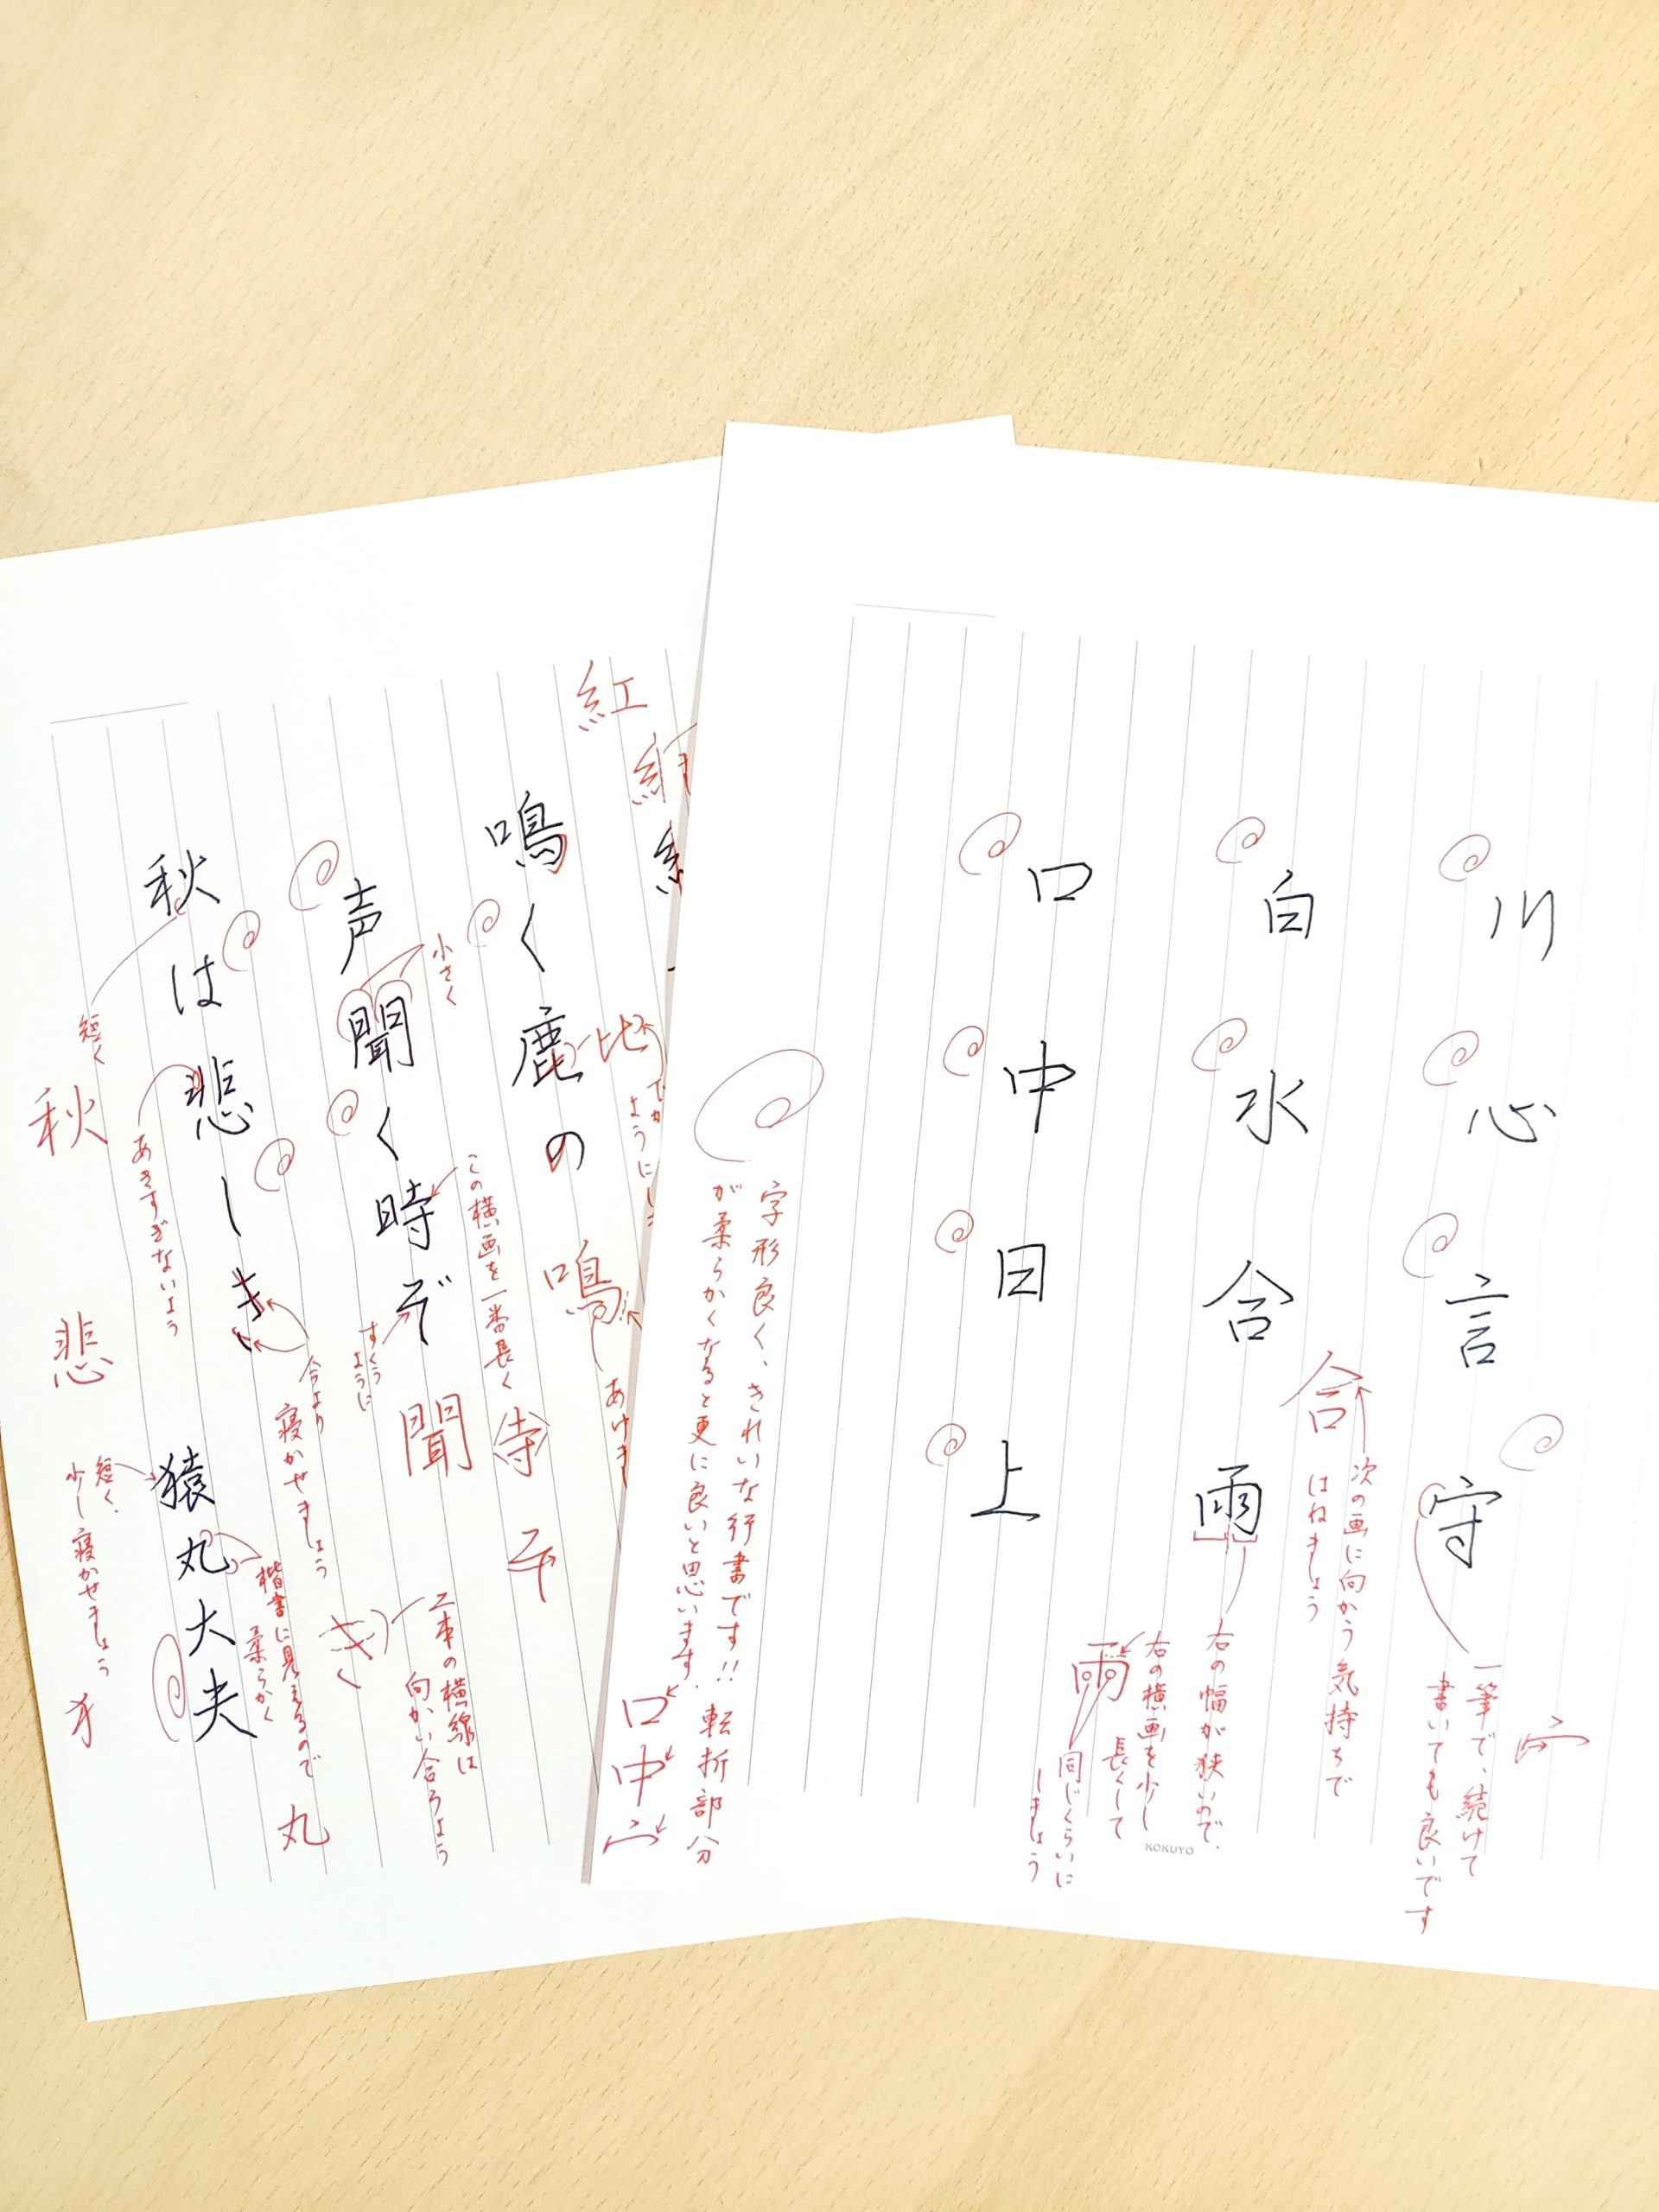 川心言守
白水合雨
口中目上
一筆で、続けて
書いても良いです
合
次の画に向かう気持ちで
はねましょう
右の幅が狭いので、
右の横画を少し
長くして
同じくらいに
しましょう
雨
字形良く、きれいな行書です!! 転折部分
が柔らかくなると更に良いと思います。
口
中
宀
KOKUYO
紅
鳴く鹿の
声聞く時ぞ
秋は悲しき
猿丸大夫
比
鳴
小さく
この横画を一番長く
寺
すくう
ように
聞
短く
秋
あきすぎないよう
悲
今より
寝かせましょう
き
二本の横線は
向かい合うよう
楷書に見えるので
柔らかく
丸
短く、
少し寝かせましょう
犭